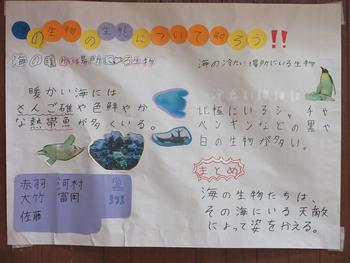 海の生物の生態について知ろう!!
海の暖かい場所にいる生物
海の冷たい場所にいる生物
暖かい海には
さんご礁や色鮮やか
な熱帯魚が多くいる。
北極にいるシャチや
ペンギンなどの黒や
白の生物が多い。
まとめ
海の生物たちは、
その海にいる天敵
によって姿をかえる。
赤羽 河村
大竹 冨岡
佐藤